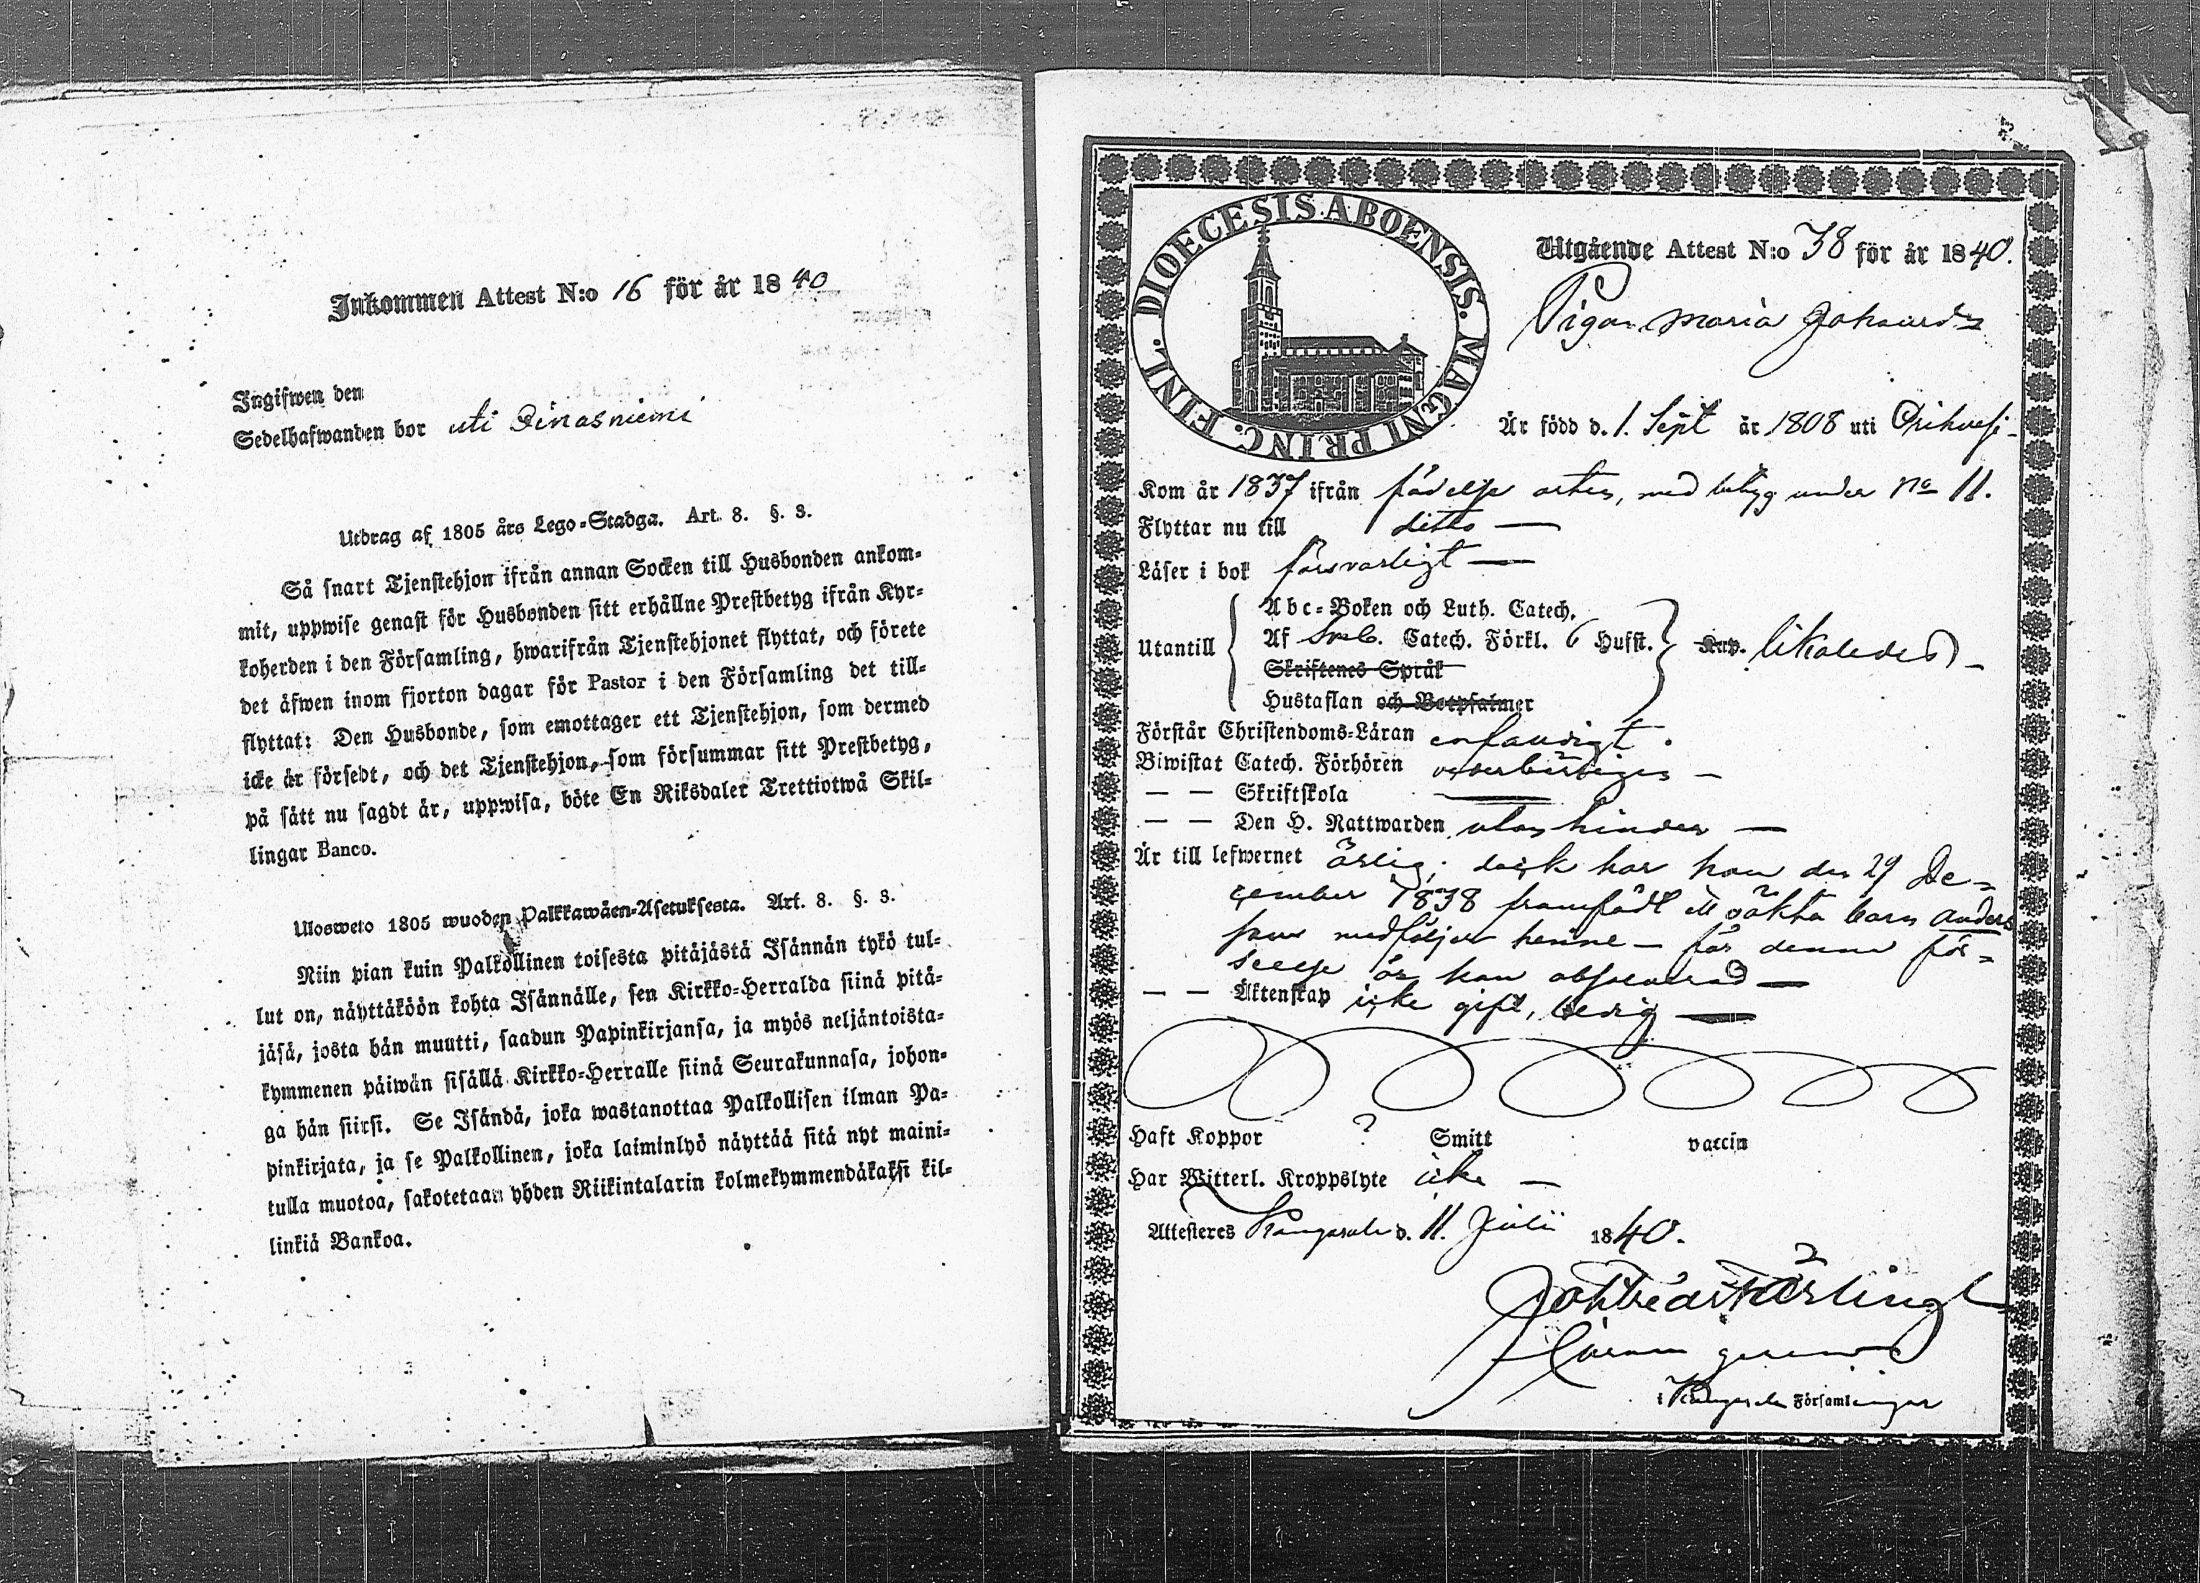 Inkommen Attest N:o 16 för år 1840
Ingifwen den
Sedelhafwanden bor uti
Utdrag af 1805 års Lego-Stadga. Art. 8. §. 3.
Så snart Tjenstehjon ifrån annan Socken till Husbonden ankom-
mit, uppwise genast för Husbonden sitt erhållne Prestbetyg ifrån Kyr-
koherden i den Församling, hwarifrån Tjenstehjonet flyttat, och förete
det äfwen inom fjorton dagar för Pastor i den Församling det till-
flyttat: Den Husbonde, som emottager ett Tjenstehjon, som dermed
icke är försedt, och det Tjenstehjon, som försummar sitt Prestbetyg,
på sätt nu sagdt är, uppwisa, böte En Riksdaler Trettiotwå Skil-
lingar Banco.
Ulosweto 1805 wuoden Palkkawäen-Asetuksesta. Art. 8. §. 3.
Niin pian kuin Palkollinen toisesta pitäjästä Isännän tykö tul-
lut on, näyttäköön kohta Isännälle, sen Kirkko-Herralda siinä pitä-
jäsä, josta hän muutti, saadun Papinkirjansa, ja myös neljäntoista-
kymmenen päiwän sisällä Kirkko-Herralle siinä Seurakunnasa, johon-
ga hän siirsi. Se Isändä, joka wastanottaa Palkollisen ilman Pa-
pinkirjata, ja se Palkollinen, joka laiminlyö näyttää sitä nyt maini-
tulla muotoa, sakotetaan yhden Riikintalarin kolmekymmendäkaksi kil-
linkiä Bankoa.
DIOECESIS ABOENSIS. MAGNI PRINC. FINL.
Utgående Attest N:o 38 för år 1840.
Pigan Maria
Är född d. 1. Sept år 1808 uti Orihvesi
Kom år 1837 ifrån födelse orten, med betyg under No 11.
Flyttar nu till ditto —
Läser i bok försvarligt —
Utantill
Abc-Boken och Luth. Catech.
Af Catech. Förkl. 6 Hufst. Kap. likaledes —
Skriftenes Språk
Hustaflan och Botpsalmer
Förstår Christendoms-Läran enfaldigt.
Biwistat Catech. Förhören vederbörligen —
— — Skriftskola —
— — Den H. Nattwarden utan hinder —
Är till lefwernet ärlig; dock har hon den 29 De=
cember 1838 framfödt ett oäkta barn Anders
som medföljer henne — för denna för=
seelse är hon absolverad —
— — Äktenskap icke gift, ledig —
Haft Koppor ? Smitt vaccin
Har Witterl. Kroppslyte icke —
Attesteres Kangasala d. 11. Julii 1840.
i Kangasala Församlingar